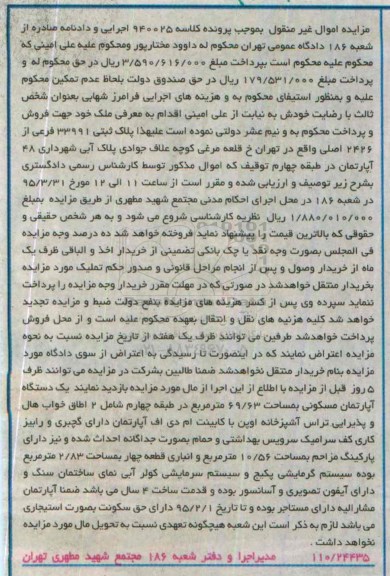 مزایده اموال غیر منقول بموجب پرونده کلاسه ۹۴۰۰۲۵ اجرایی و دادنامه صادره از
شعبه ۱۸۶ دادگاه عمومی تهران محکوم له داوود مختارپور ومحکوم علیه علی امینی که
محکوم علیه محکوم است بپرداخت مبلغ ۳/۵۹۰/۶۱۶/۰۰۰ ریال در حق محکوم له و
پرداخت مبلغ ۱۷۹/۵۳۱/۰۰۰ ریال در حق صندوق دولت بلحاظ عدم تمکین محکوم
علیه و بمنظور استیفای محکوم به و هزینه های اجرایی فرامرز شهابی بعنوان شخص
ثالث با رضایت خودش به نیابت از علی امینی اقدام به معرفی ملک خود جهت فروش
و پرداخت محکوم به و نیم عشر دولتی نموده است علیهذا پلاک ثبتی ۳۳۹۹۱ فرعی از
۲۴۲۶ اصلی واقع در تهران خ قلعه مرغی کوچه علاف جوادی پلاک آبی شهرداری ۴۸
آپارتمان در طبقه چهارم توقیف که اموال مذکور توسط کارشناس رسمی دادگستری
بشرح زیر توصیف و ارزیابی شده و مقرر است از ساعت ۱۱ الی ۱۲ مورخ ۹۵/۳/۳۱
در شعبه ۱۸۶ در محل اجرای احکام مدنی مجتمع شهید مطهری از طریق مزایده بمبلغ
۱/۸۸۰/۰۱۰/۰۰۰ ریال نظریه کارشناسی شروع می شود و به هر شخص حقیقی و
حقوقی که بالاترین قیمت را پیشنهاد نماید فروخته خواهد شد ده درصد وجه مزایده
فی المجلس بصورت وجه نقد یا چک بانکی تضمینی از خریدار اخذ و الباقی ظرف یک
ماه از خریدار وصول و پس از انجام مراحل قانونی و صدور حکم تملیک مورد مزایده
بخریدار منتقل خواهدشد در صورتی که در مهلت مقرر خریدار وجه مزایده را پرداخت
ننماید سپرده وی پس از کسر هزینه های مزایده بنفع دولت ضبط و مزایده تجدید
خواهد شد کلیه هزینه های نقل و انتقال بعهده محکوم علیه است و از محل فروش
پرداخت خواهدشد طرفین می توانند ظرف یک هفته از تاریخ مزایده نسبت به نحوه
مزایده اعتراض نمایند که در اینصورت تا رسیدگی به اعتراض از سوی دادگاه مورد
مزایده بنام خریدار منتقل نخواهدشد ضمنا طالبین بشرکت در مزایده می توانند ظرف
۵ روز قبل از مزایده با اطلاع از این اجرا از مال مورد مزایده بازدید نمایند یک دستگاه
آپارتمان مسکونی بمساحت ۶۹/۶۳ مترمربع در طبقه چهارم شامل ۲ اطاق خواب هال
و پذیرایی تراس آشپزخانه اوپن با کابینت ام دی اف آپارتمان دارای گچبری و رابیز
کاری کف سرامیک سرویس بهداشتی و حمام بصورت جداگانه احداث شده و نیز دارای
پارکینگ مزاحم بمساحت ۱۰/۵۶ مترمربع و انباری قطعه چهار بمساحت ۲/۸۳ مترمربع
بوده سیستم گرمایشی پکیج و سیستم سرمایشی کولر آبی نمای ساختمان سنگ و
دارای آیفون تصویری و آسانسور بوده و قدمت ساخت ۴ سال می باشد ضمنا آپارتمان
مشارالیه دارای مستاجر بوده و تا تاریخ ۹۵/۲/۱ دارای حق سکونت بصورت استیجاری
می باشد لازم به ذکر است این شعبه هیچگونه تعهدی نسبت به تحویل مال مورد مزایده
نخواهد داشت.
۱۱۰/۲۴۴۳۵ مدیراجرا و دفتر شعبه ۱۸۶ مجتمع شهید مطهری تهران